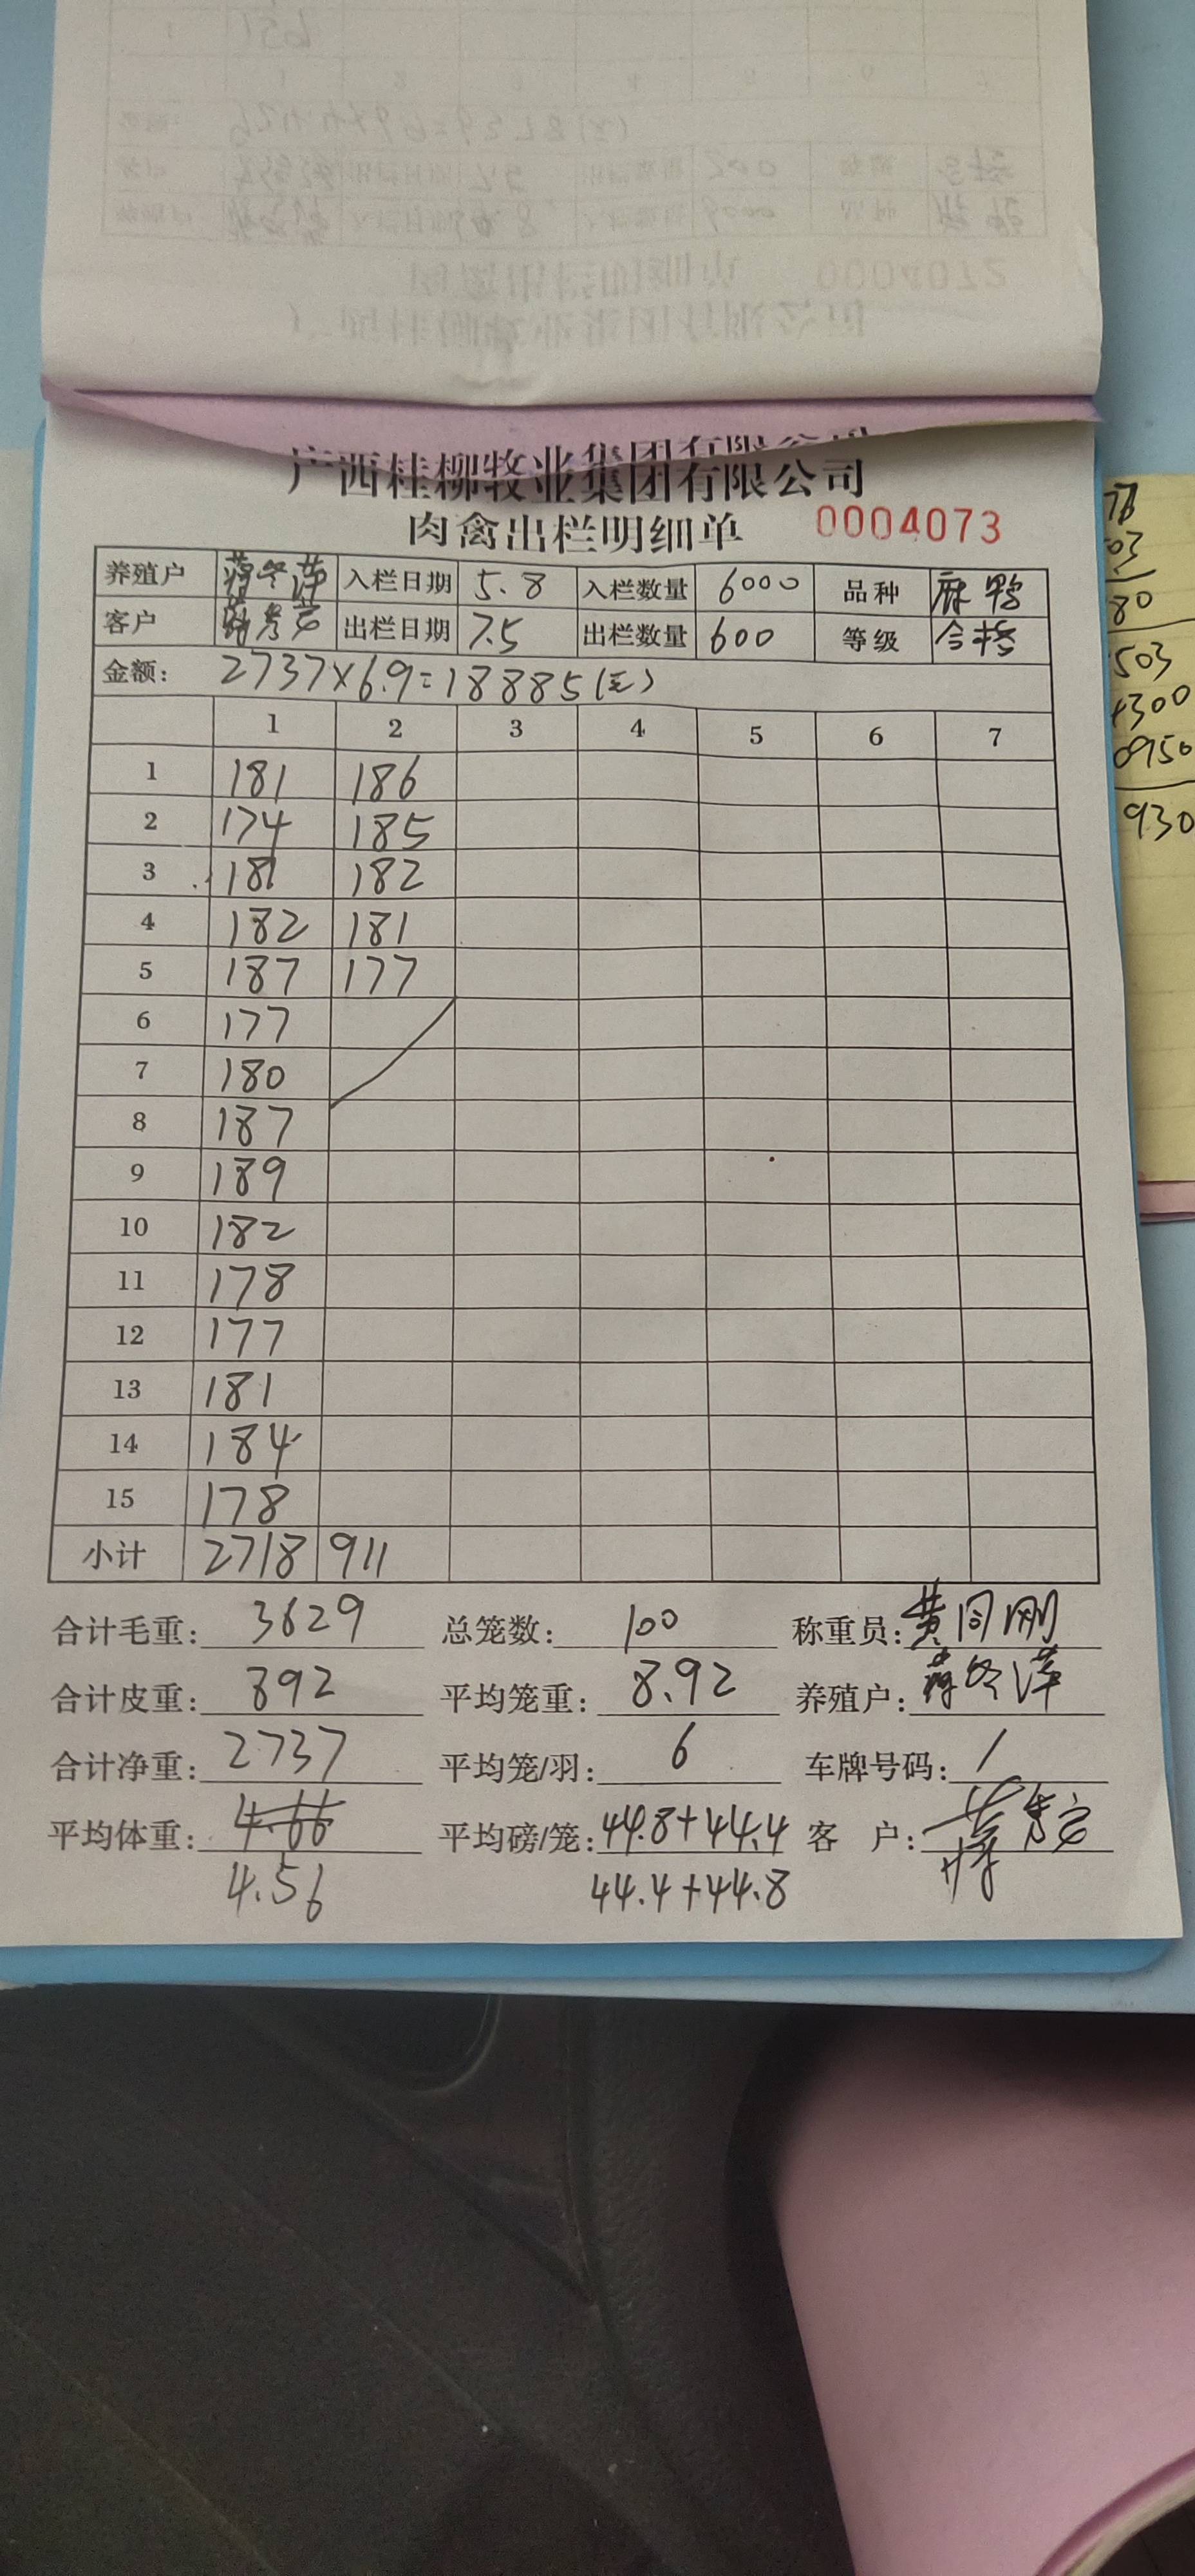 广西桂柳牧业集团有限公司
肉禽出栏明细单 0004073
养殖户 蒋冬萍 入栏日期 5.8 入栏数量 6000 品种 麻鸭
客户 出栏日期 7.5 出栏数量 600 等级 合格
金额： 2737×6.9=18885(元)
1 2 3 4 5 6 7
1 181 186
2 174 185
3 181 182
4 182 181
5 187 177
6 177
7 180
8 187
9 189
10 182
11 178
12 177
13 181
14 184
15 178
小计 2718 911
合计毛重： 3629 总笼数： 100 称重员： 黄同刚
合计皮重： 892 平均笼重： 8.92 养殖户： 蒋冬萍
合计净重： 2737 平均笼/羽： 6 车牌号码： /
平均体重： 4.66 平均磅/笼： 44.8+44.4 客 户：
4.56 44.4+44.8
03
80
503
+300
0950
930